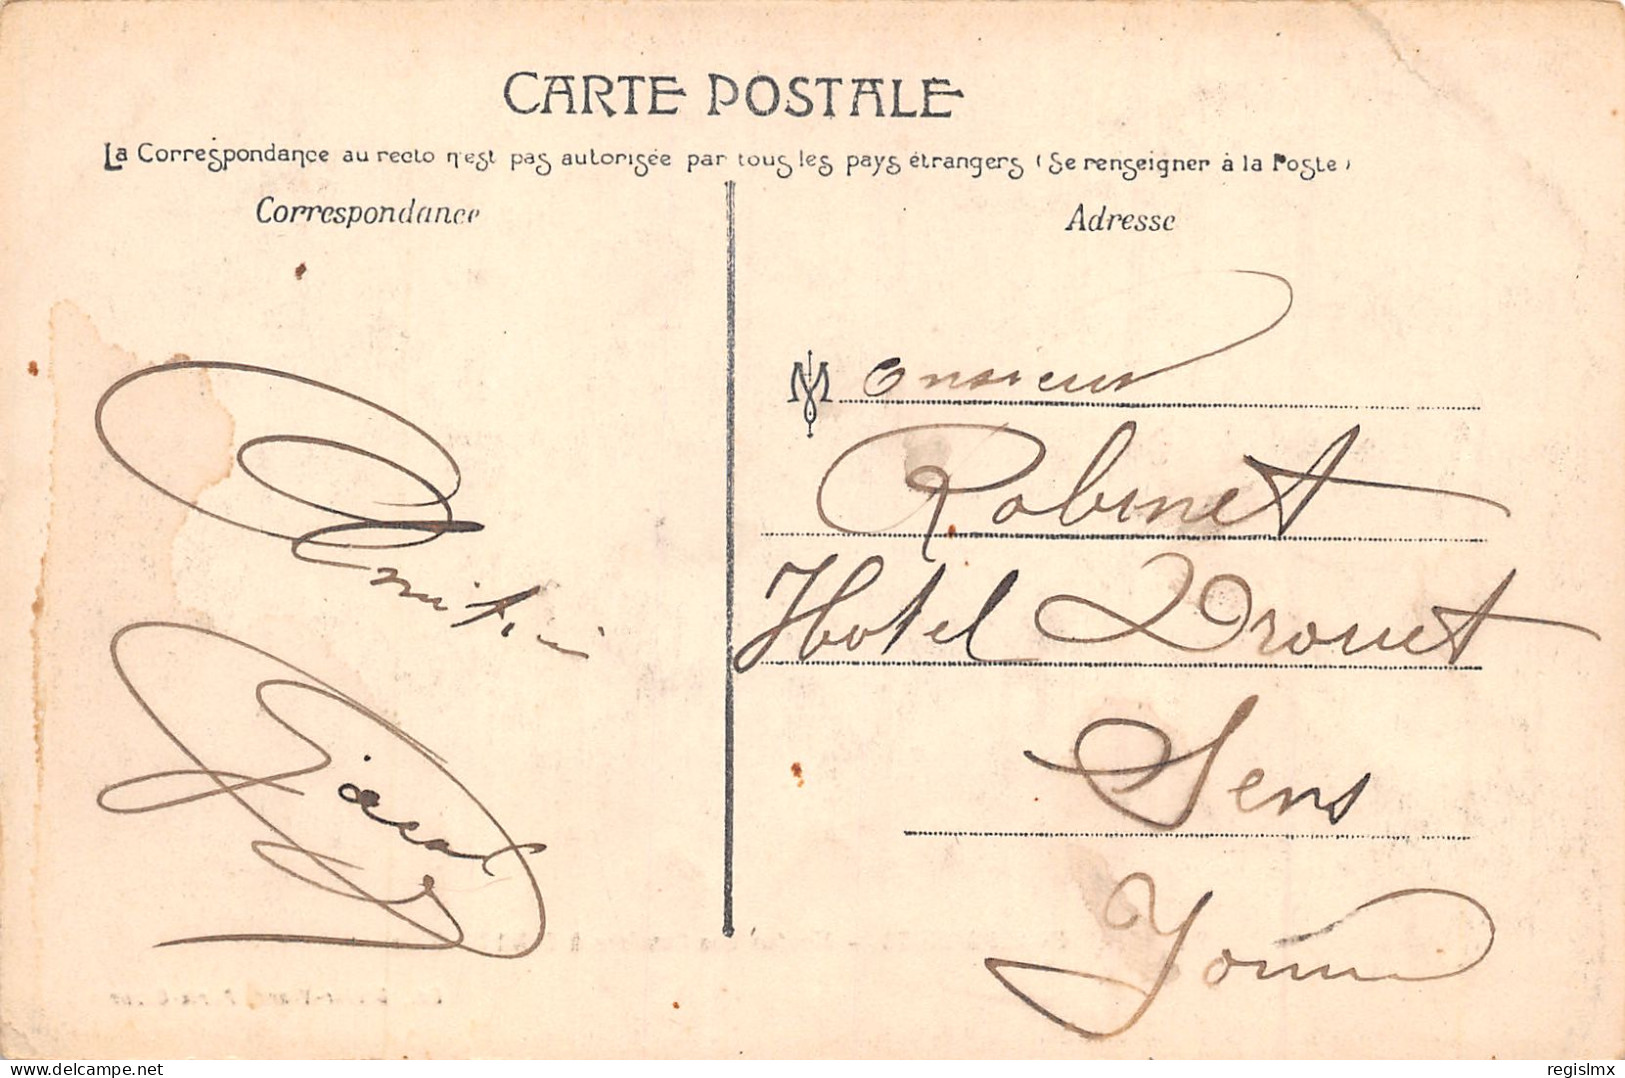 CARTE POSTALE
La Correspondance au recto n'est pas autorisée par tous les pays étrangers (Se renseigner à la Poste)
Correspondance
Adresse
Monsieur
Robinet
Hotel Drouet
Sens
Yonne
delcampe.net
regislmx